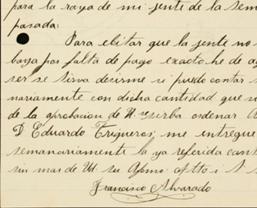 para la raya de mi jente de la sem
pasada:
Para evitar que la jente no
baya por falta de pago exacto he de a
ser se sirva decirme si puedo contar s
nariamente con dicha cantidad que s
de la aprobacion de U. yerba ordenar
D Eduardo Trigueros, me entregue
semanariamente la ya referida cant
sin mas de Ud su Afmo. Atto i S. S
Francisco Alvarado